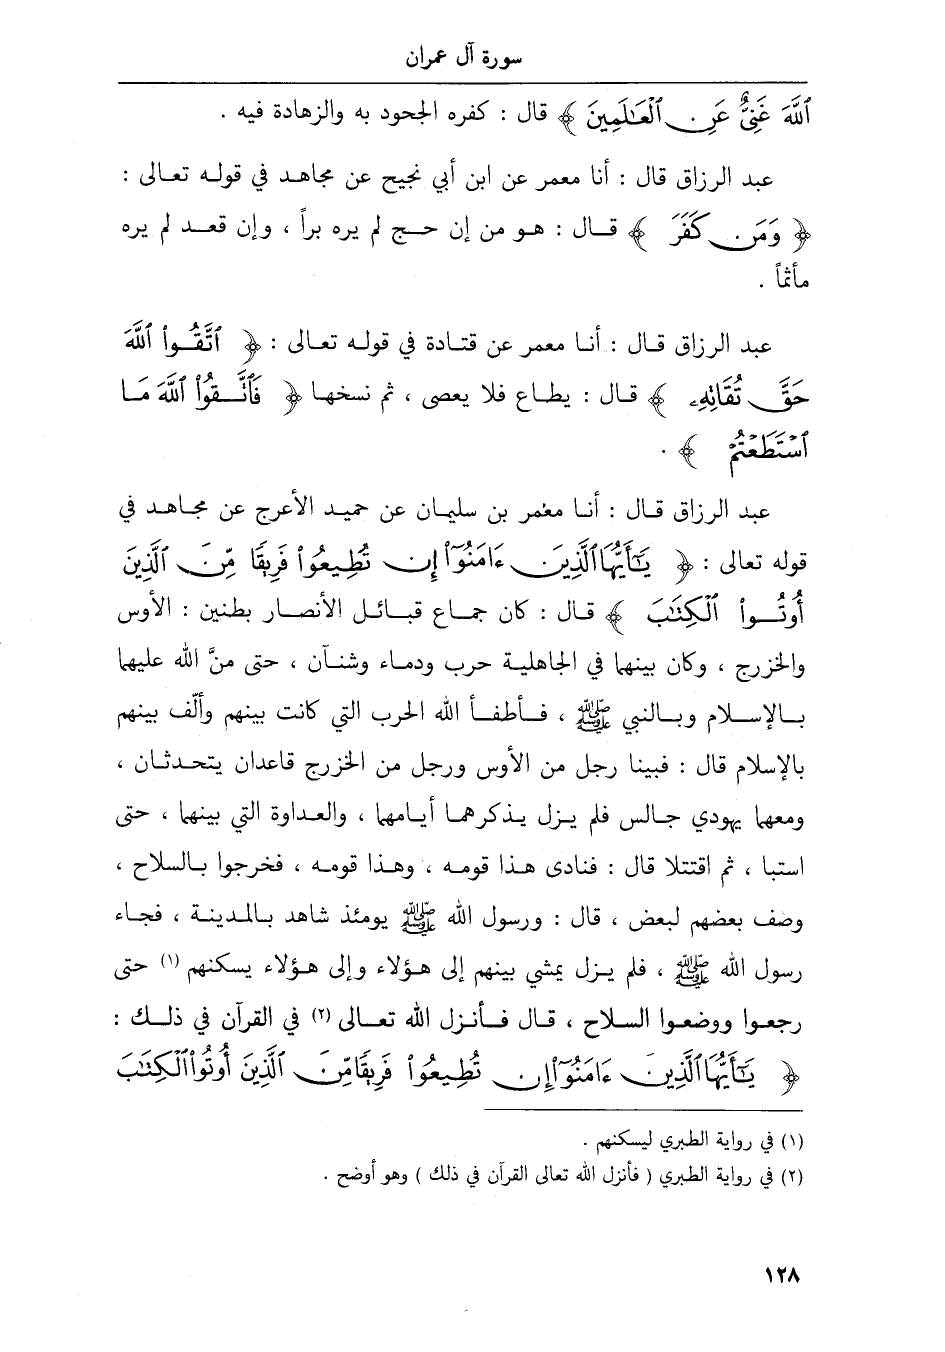 سورة آل عمران
ٱللَّهَ غَنِىٌّ عَنِ ٱلْعَـٰلَمِينَ ﴾ قال : كفره الجحود به والزهادة فيه .
عبد الرزاق قال : أنا معمر عن ابن أبي نجيح عن مجاهد في قوله تعالى :
﴿ وَمَن كَفَرَ ﴾ قال : هو من إن حج لم يره براً ، وإن قعد لم يره
مأثماً .
عبد الرزاق قال : أنا معمر عن قتادة في قوله تعالى : ﴿ ٱتَّقُوا۟ ٱللَّهَ
حَقَّ تُقَاتِهِۦ ﴾ قال : يطاع فلا يعصى ، ثم نسخها ﴿ فَٱتَّقُوا۟ ٱللَّهَ مَا
ٱسْتَطَعْتُمْ ﴾ .
عبد الرزاق قال : أنا معمر بن سليمان عن حميد الأعرج عن مجاهد في
قوله تعالى : ﴿ يَـٰٓأَيُّهَا ٱلَّذِينَ ءَامَنُوٓا۟ إِن تُطِيعُوا۟ فَرِيقًا مِّنَ ٱلَّذِينَ
أُوتُوا۟ ٱلْكِتَـٰبَ ﴾ قال : كان جماع قبائل الأنصار بطنين : الأوس
والخزرج ، وكان بينهما في الجاهلية حرب ودماء وشنآن ، حتى منَّ الله عليهما
بالإسلام وبالنبي ﷺ ، فأطفأ الله الحرب التي كانت بينهم وألّف بينهم
بالإسلام قال : فبينا رجل من الأوس ورجل من الخزرج قاعدان يتحدثان ،
ومعهما يهودي جالس فلم يزل يذكرهما أيامهما ، والعداوة التي بينهما ، حتى
استبا ، ثم اقتتلا قال : فنادى هذا قومه ، وهذا قومه ، فخرجوا بالسلاح ،
وصف بعضهم لبعض ، قال : ورسول الله ﷺ يومئذ شاهد بالمدينة ، فجاء
رسول الله ﷺ ، فلم يزل يمشي بينهم إلى هؤلاء وإلى هؤلاء يسكنهم (١) حتى
رجعوا ووضعوا السلاح ، قال فأنزل الله تعالى (٢) في القرآن في ذلك :
﴿ يَـٰٓأَيُّهَا ٱلَّذِينَ ءَامَنُوٓا۟ إِن تُطِيعُوا۟ فَرِيقًا مِّنَ ٱلَّذِينَ أُوتُوا۟ ٱلْكِتَـٰبَ
(١) في رواية الطبري ليسكنهم .
(٢) في رواية الطبري ( فأنزل الله تعالى القرآن في ذلك ) وهو أوضح .
١٢٨